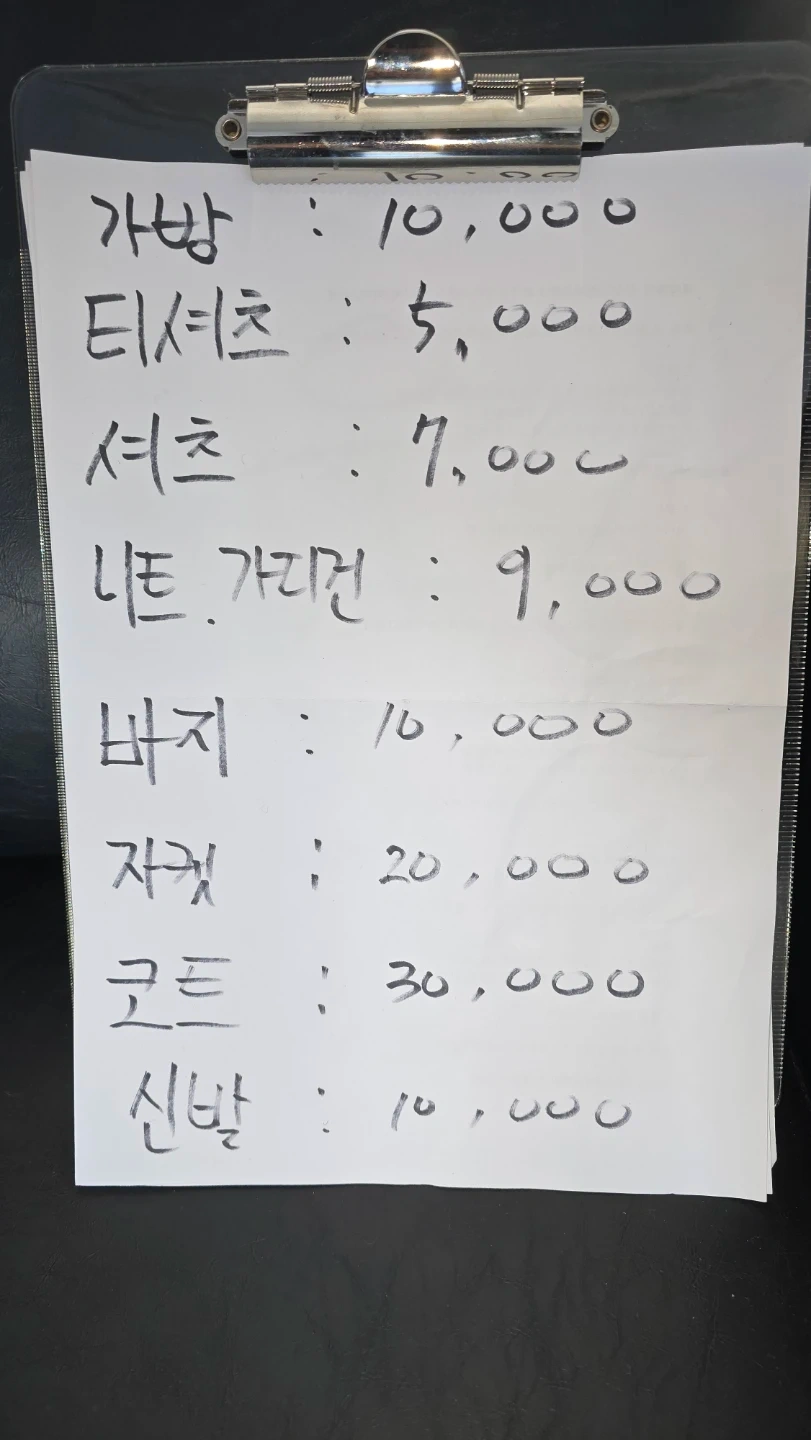 가방 : 10,000
티셔츠 : 5,000
셔츠 : 7,000
니트. 가디건 : 9,000
바지 : 10,000
자켓 : 20,000
코트 : 30,000
신발 : 10,000